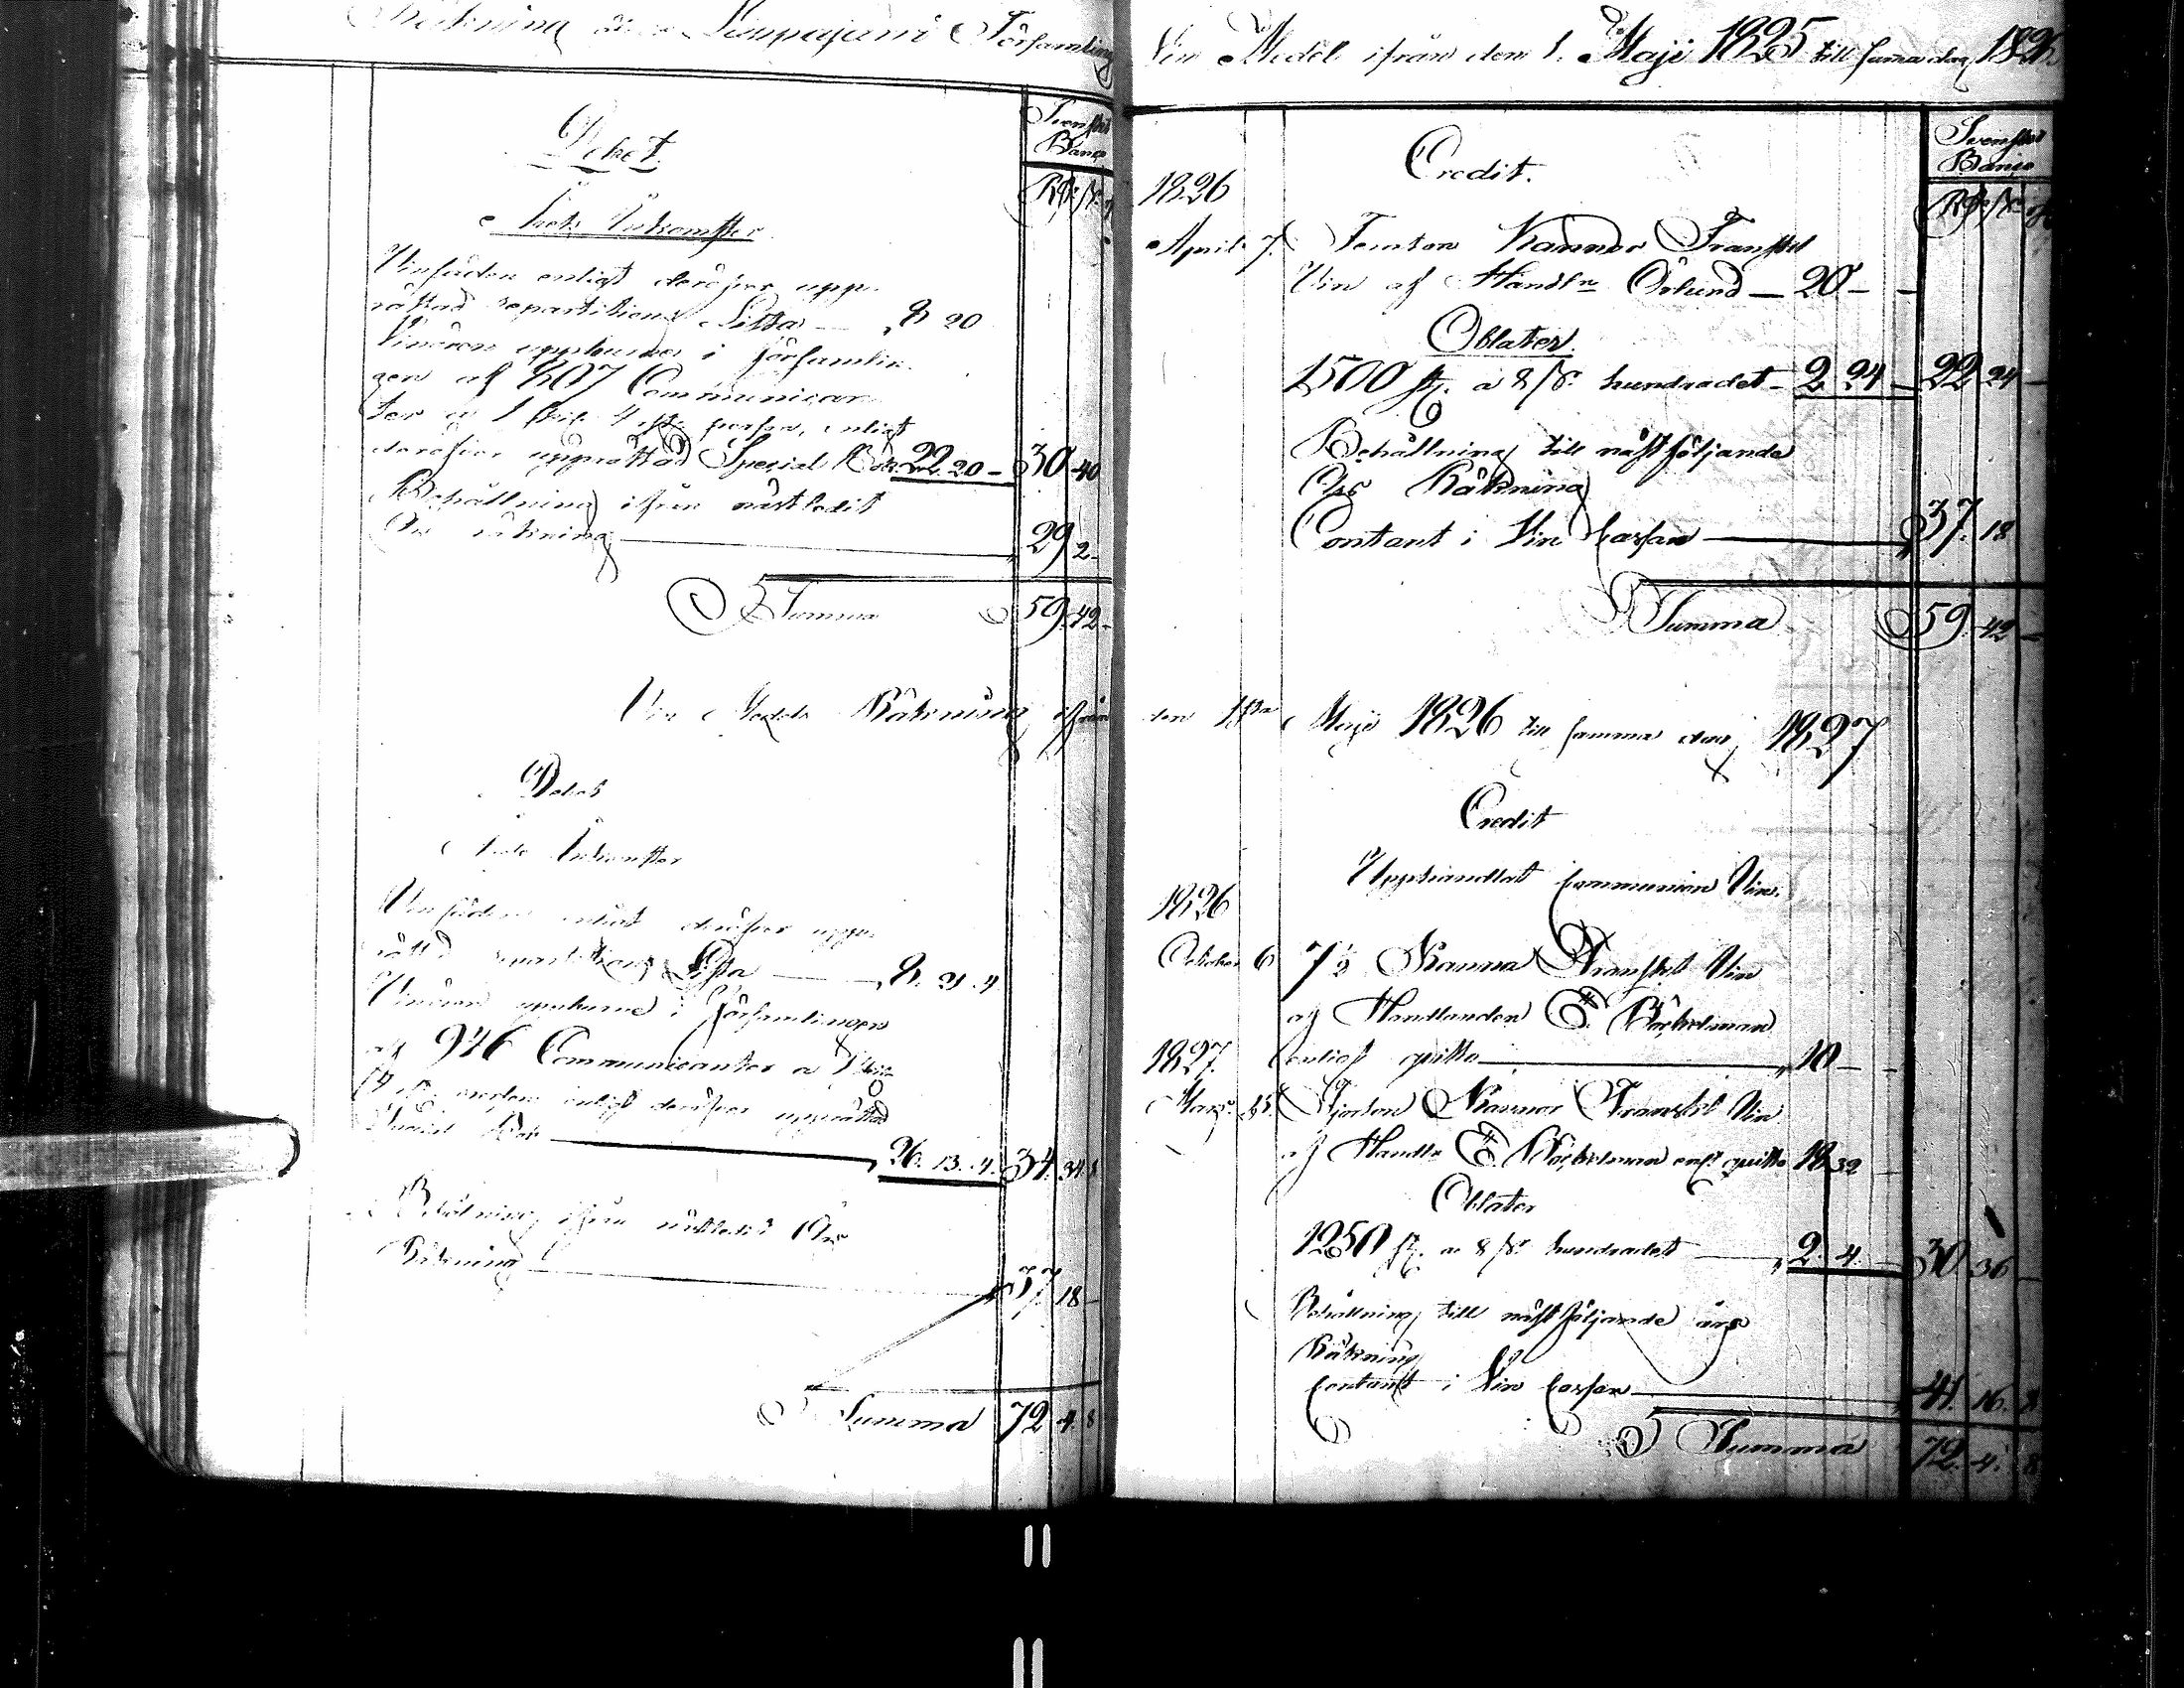 Räkning öfver Församling
Debet.
Svenskt
Banco
Rd. s.
Årets Inkomster
Vinsäden enligt deröfver upp-
rättad repartitions Lista — 8 20
Vinören uppburne i församlin-
gen af 807 Communican-
ter a 1 s. 4 rst. person, enligt
deröfver upprättad Special Räk. 22. 20 – 30 40
Behållning ifrån nästledit
Års räkning 29 2 –
Summa 59. 42 –
Vin Medels Räkning ifrån
Debet
Årets Inkomster
Vinsäden enligt deröfver upp-
rättad repartitions Lista — 8. 21. 4
Vinören uppburne i Församlingen
af 946 Communicanter a 1 s.
4 r. enligt deröfver upprättad
Special Räk. 26. 13. 4. 34. 34. 8
Behålning ifrån nästledit Års
Räkning 37. 18 –
Summa 72 4 8
Vin Medel ifrån den 1. Maji 1825 till samma dag 1826
Svenskt
Banco
Credit.
Rd. s. r
1826
April 7. Femton Kannor Franskt
Vin af Handl. Öslund — 20 – –
Oblater.
1500 st. a 8 s. hundradet – 2. 24 – 22 24 –
Behållning till nästföljande
Års Räkning
Contant i Vin Cassan 37. 18
Summa 59. 42 –
den 1sta Maji 1826 till samma dag 1827
Credit
Upphandlat Communion Vin.
1826
October 6 7½ Kanna Franskt Vin
af Handlanden E. Böckelman
1827. enligt quitto 10 – –
Mars 15. Fjorton Kannor Franskt Vin
af Handl. E. Böckelman enl. quitto 18 32
Oblater
1250 st. a 8 s. hundradet 2. 4. – 30 36 –
Behållning till nästföljande års
Räkning
Contant i Vin Cassan 41. 16. 8
Summa 72. 4. 8